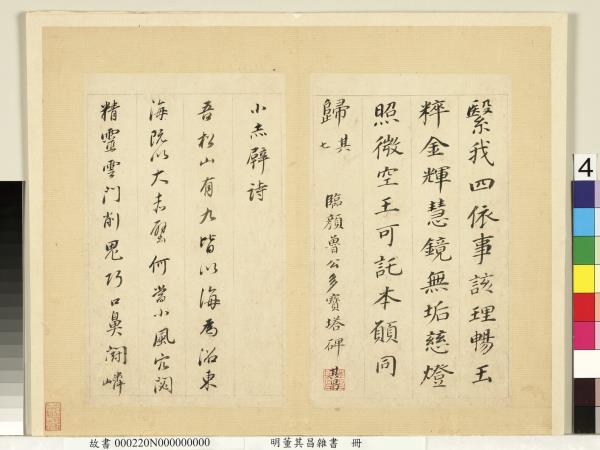 繄我四依事該理暢玉
粹金輝慧鏡無垢慈燈
照微空王可託本願同
歸 其七
臨顏魯公多寶塔碑 其昌
小赤壁詩
吾松山有九皆以海為沼東
海既以大赤壁何當小風穴
精靈雲門削鬼巧口鼻嶙
4
故書 000220N000000000 明董其昌雜書 冊